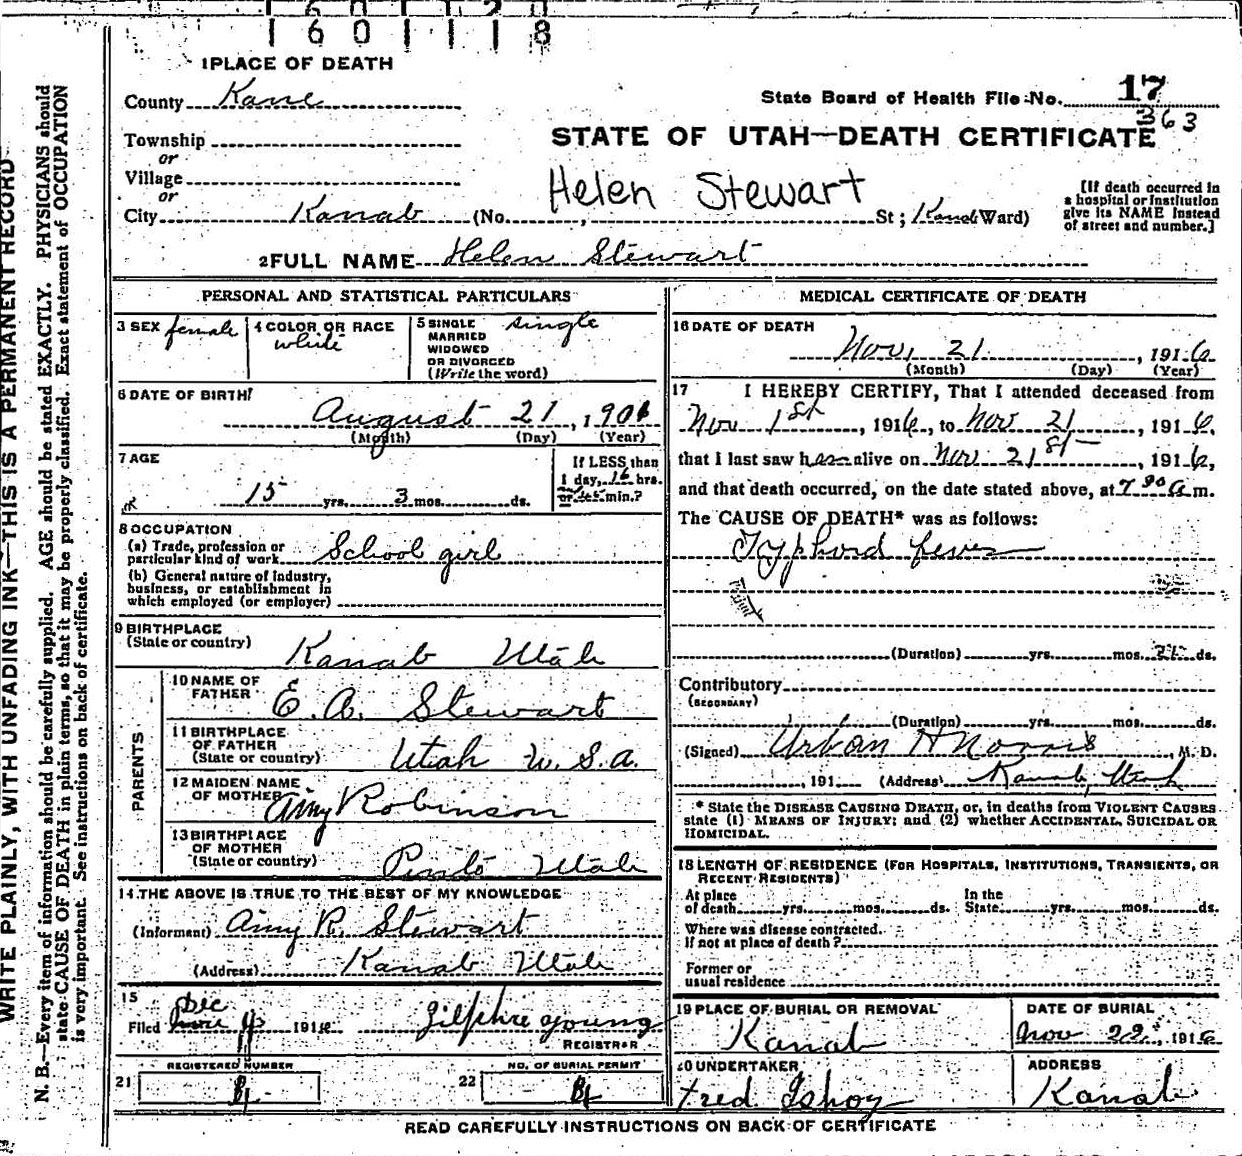 1601118
1 PLACE OF DEATH
County Kane
State Board of Health File No. 17
363
Township
STATE OF UTAH—DEATH CERTIFICATE
or
Village
Helen Stewart
or
City Kanab (No. , St; Kanab Ward)
[If death occurred in
a hospital or institution
give its NAME instead
of street and number.]
2 FULL NAME Helen Stewart
PERSONAL AND STATISTICAL PARTICULARS
3 SEX female
4 COLOR OR RACE
white
5 SINGLE single
MARRIED
WIDOWED
OR DIVORCED
(Write the word)
6 DATE OF BIRTH
August 21, 1901
(Month) (Day) (Year)
7 AGE
15 yrs. 3 mos. ds.
If LESS than
1 day, 16 hrs.
or min.?
8 OCCUPATION
(a) Trade, profession or
particular kind of work School girl
(b) General nature of industry,
business, or establishment in
which employed (or employer)
9 BIRTHPLACE
(State or country)
Kanab Utah
PARENTS
10 NAME OF
FATHER
E. A. Stewart
11 BIRTHPLACE
OF FATHER
(State or country) Utah U.S.A.
12 MAIDEN NAME
OF MOTHER Amy Robinson
13 BIRTHPLACE
OF MOTHER
(State or country) Pinto Utah
14 THE ABOVE IS TRUE TO THE BEST OF MY KNOWLEDGE
(Informant) Amy R. Stewart
(Address) Kanab Utah
15
Dec
Filed 1916 Young
REGISTRAR
REGISTERED NUMBER
21
NO. OF BURIAL PERMIT
22
MEDICAL CERTIFICATE OF DEATH
16 DATE OF DEATH
Nov. 21, 1916
(Month) (Day) (Year)
17 I HEREBY CERTIFY, That I attended deceased from
Nov 1st, 1916, to Nov 21, 1916,
that I last saw her alive on Nov 21st, 1916,
and that death occurred, on the date stated above, at 7 30 a m.
The CAUSE OF DEATH* was as follows:
Typhoid fever
(Duration) yrs. mos. 21 ds.
Contributory
(SECONDARY)
(Duration) yrs. mos. ds.
(Signed) Urban H Norris, M. D.
, 191 (Address) Kanab, Utah
* State the DISEASE CAUSING DEATH, or, in deaths from VIOLENT CAUSES
state (1) MEANS OF INJURY; and (2) whether ACCIDENTAL, SUICIDAL OR
HOMICIDAL.
18 LENGTH OF RESIDENCE (FOR HOSPITALS, INSTITUTIONS, TRANSIENTS, OR
RECENT RESIDENTS)
At place
of death yrs. mos. ds.
In the
State yrs. mos. ds.
Where was disease contracted.
If not at place of death?
Former or
usual residence
19 PLACE OF BURIAL OR REMOVAL
Kanab
DATE OF BURIAL
Nov 22, 1916
20 UNDERTAKER
Fred
ADDRESS
Kanab
READ CAREFULLY INSTRUCTIONS ON BACK OF CERTIFICATE
WRITE PLAINLY, WITH UNFADING INK—THIS IS A PERMANENT RECORD
N. B.—Every item of information should be carefully supplied. AGE should be stated EXACTLY. PHYSICIANS should
state CAUSE OF DEATH in plain terms, so that it may be properly classified. Exact statement of OCCUPATION
is very important. See instructions on back of certificate.